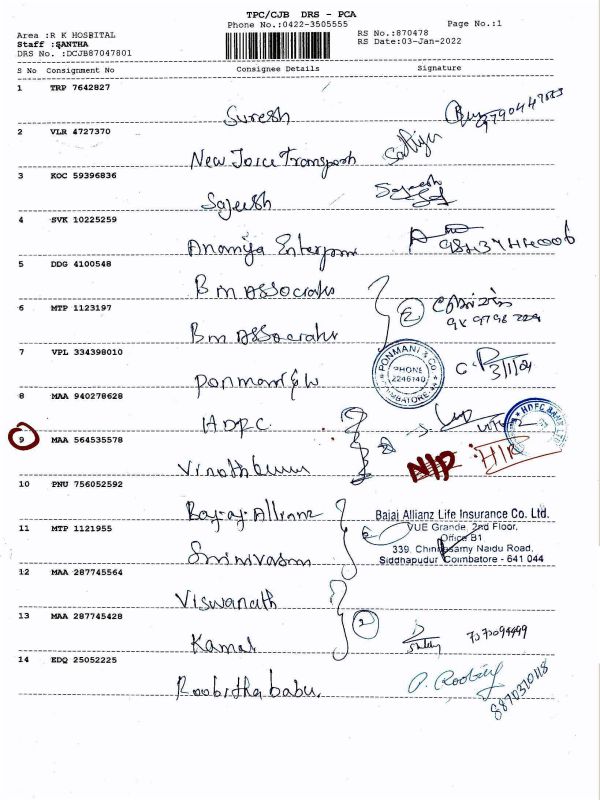 TPC/CJB DRS - PCA
Phone No.:0422-3505555
Page No.:1
Area :R K HOSBITAL
Staff :SANTHA
DRS No. :DCJB87047801
RS No.:870478
RS Date:03-Jan-2022
S No Consignment No Consignee Details Signature
1 TRP 7642827
Suresh
2 VLR 4727370
New Joice Transport
3 KOC 59396836
Sajeesh
Sajeesh
4 SVK 10225259
Ananya Enterprises
5 DDG 4100548
BM Associates
6 MTP 1123197
BM Associates
7 VPL 334398010
Ponmani & Co
PONMANI & CO
PHONE
2246140
COIMBATORE
3/1/22
8 MAA 940278628
HDFC
HDFC BANK LTD
9 MAA 564535578
Vinothkumar
N/P
10 PNU 756052592
Bajaj Allianz
Bajaj Allianz Life Insurance Co. Ltd.
VUE Grande, 2nd Floor,
Office B1
339, Chinnasamy Naidu Road,
Siddhapudur Coimbatore - 641 044
11 MTP 1121955
Srinivasan
12 MAA 287745564
Viswanath
13 MAA 287745428
Kamal
2
14 EDQ 25052225
Roobitha babu
8870370118